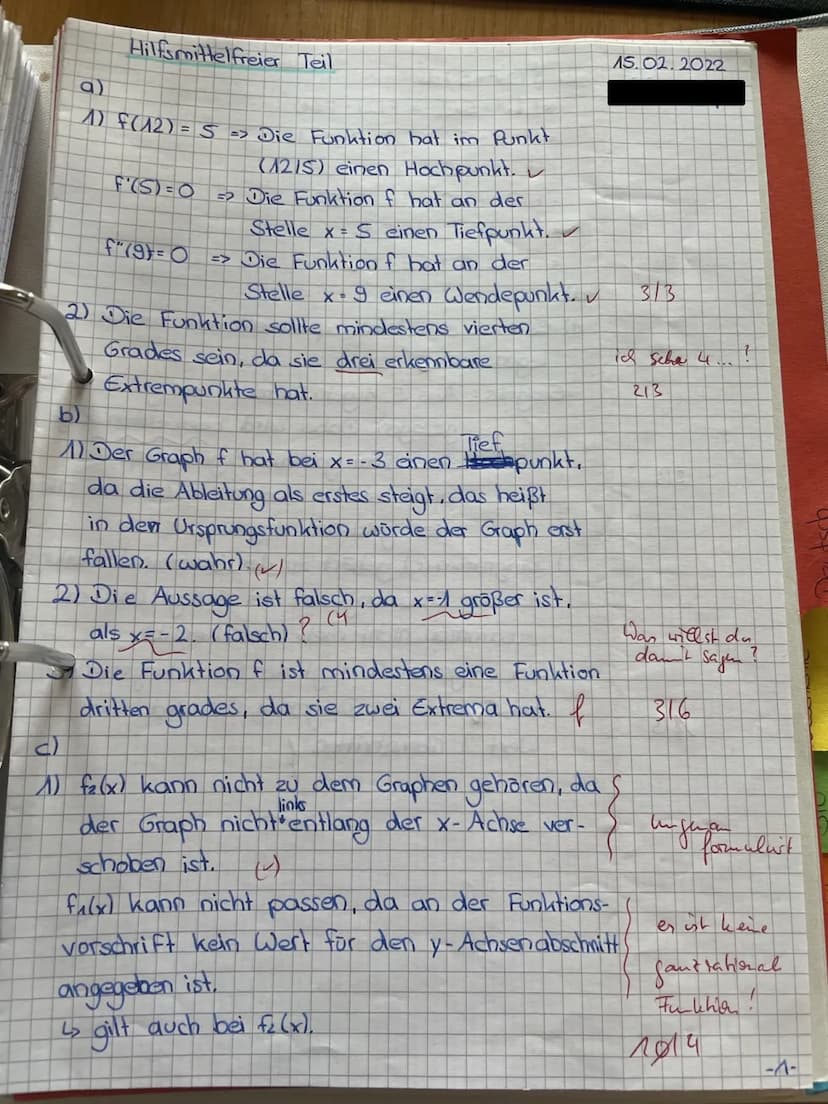 Hilfsmittelfreier Teil
15.02.2022
a)
1) f(12) = 5 => Die Funktion hat im Punkt
(12|5) einen Hochpunkt. ✓
f'(5) = 0 => Die Funktion f hat an der
Stelle x = 5 einen Tiefpunkt. ✓
f''(9) = 0 => Die Funktion f hat an der
Stelle x = 9 einen Wendepunkt. ✓ 3/3
2) Die Funktion sollte mindestens vierten
Grades sein, da sie drei erkennbare
ich sehe 4...!
Extrempunkte hat.
2/3
b)
1) Der Graph f hat bei x = -3 einen Tiefpunkt,
da die Ableitung als erstes steigt, das heißt
in der Ursprungsfunktion würde der Graph erst
fallen. (wahr) (✓)
2) Die Aussage ist falsch, da x=-1 größer ist,
als x = -2. (falsch) ? (✓)
Was willst du
damit sagen?
3) Die Funktion f ist mindestens eine Funktion
dritten grades, da sie zwei Extrema hat. f 3/6
c)
1) f₂(x) kann nicht zu dem Graphen gehören, da
der Graph nicht links entlang der x-Achse ver-
schoben ist. (✓)
ungenau
formuliert
f₁(x) kann nicht passen, da an der Funktions-
vorschrift kein Wert für den y-Achsenabschnitt
angegeben ist.
es ist keine
ganzrational
Funktion!
↳ gilt auch bei f₂(x).
-1-